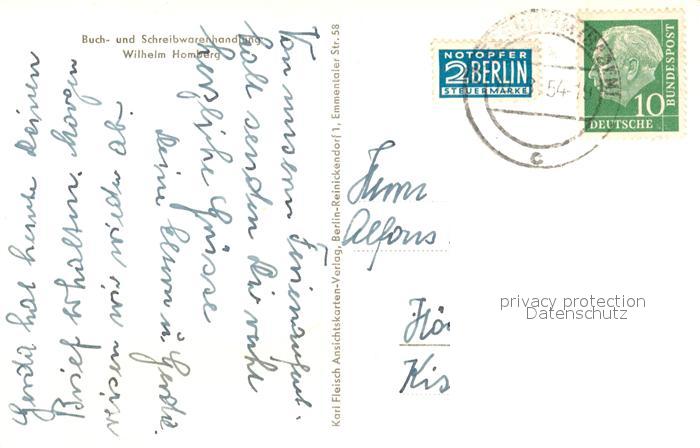 Buch- und Schreibwarenhandlung
Wilhelm Homberg
Von unserm Ferienaufent-
halt senden Dir recht
herzliche Grüsse
Deine Eltern u. Gerda.
Gerda hat heute Deinen
Brief erhalten. Morgen
reisen wir wieder ab.
Karl Fleisch Ansichtskarten-Verlag, Berlin-Reinickendorf 1, Emmentaler Str. 58
NOTOPFER
2 BERLIN
STEUERMARKE
54-
c
10
DEUTSCHE
BUNDESPOST
Herrn
Alfons
Kis
privacy protection
Datenschutz